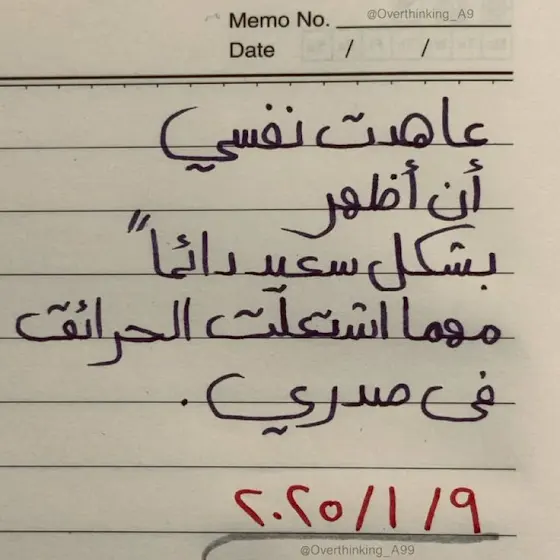 @Overthinking_A9
Memo No.
Date / /
عاهدت نفسي
أن أظهر
بشكل سعيد دائماً
مهما اشتعلت الحرائق
في صدري .
٢٠٢٠/١/٩
@Overthinking_A99